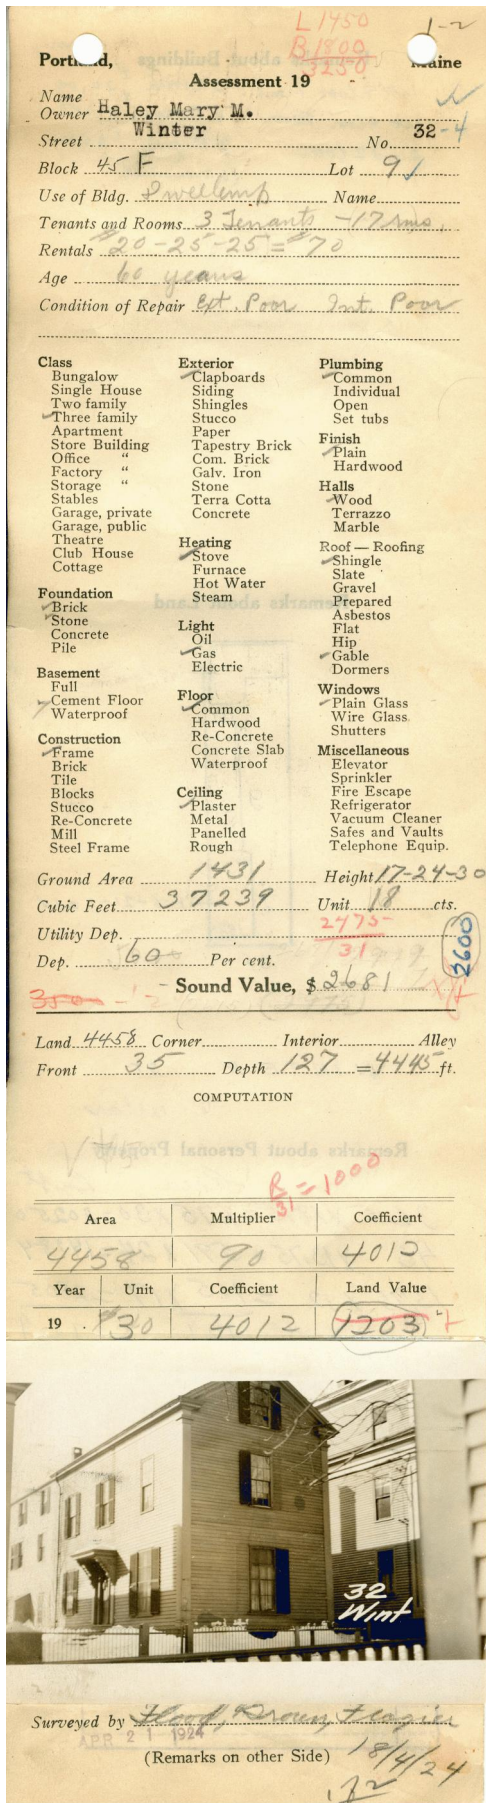 L 1450
B 1800
3250
1-2
Portland, Maine
Assessment 19
Name
Owner Haley Mary M.
Street Winter No. 32-4
Block 45 F Lot 9
Use of Bldg. Dwelling Name
Tenants and Rooms 3 Tenants - 17 rms.
Rentals $20-25-25=$70
Age 60 years
Condition of Repair Ext. Poor Int. Poor
Class
Bungalow
Single House
Two family
Three family
Apartment
Store Building
Office "
Factory "
Storage "
Stables
Garage, private
Garage, public
Theatre
Club House
Cottage
Foundation
Brick
Stone
Concrete
Pile
Basement
Full
Cement Floor
Waterproof
Construction
Frame
Brick
Tile
Blocks
Stucco
Re-Concrete
Mill
Steel Frame
Exterior
Clapboards
Siding
Shingles
Stucco
Paper
Tapestry Brick
Com. Brick
Galv. Iron
Stone
Terra Cotta
Concrete
Heating
Stove
Furnace
Hot Water
Steam
Light
Oil
Gas
Electric
Floor
Common
Hardwood
Re-Concrete
Concrete Slab
Waterproof
Ceiling
Plaster
Metal
Panelled
Rough
Plumbing
Common
Individual
Open
Set tubs
Finish
Plain
Hardwood
Halls
Wood
Terrazzo
Marble
Roof — Roofing
Shingle
Slate
Gravel
Prepared
Asbestos
Flat
Hip
Gable
Dormers
Windows
Plain Glass
Wire Glass
Shutters
Miscellaneous
Elevator
Sprinkler
Fire Escape
Refrigerator
Vacuum Cleaner
Safes and Vaults
Telephone Equip.
Ground Area 1431 Height 17-24-30
Cubic Feet 37239 Unit 18 cts.
Utility Dep. 2475-
31
2600
Dep. 60 Per cent.
Sound Value, $ 2681
Land 4458 Corner Interior Alley
Front 35 Depth 127 = 4445 ft.
COMPUTATION
B
31 = 1000
Area Multiplier Coefficient
4458 90 4012
Year Unit Coefficient Land Value
19 $30 4012 1203
32
Wint
Surveyed by Flood, Brown, Frazier
APR 21 1924
(Remarks on other Side)
18/4/24